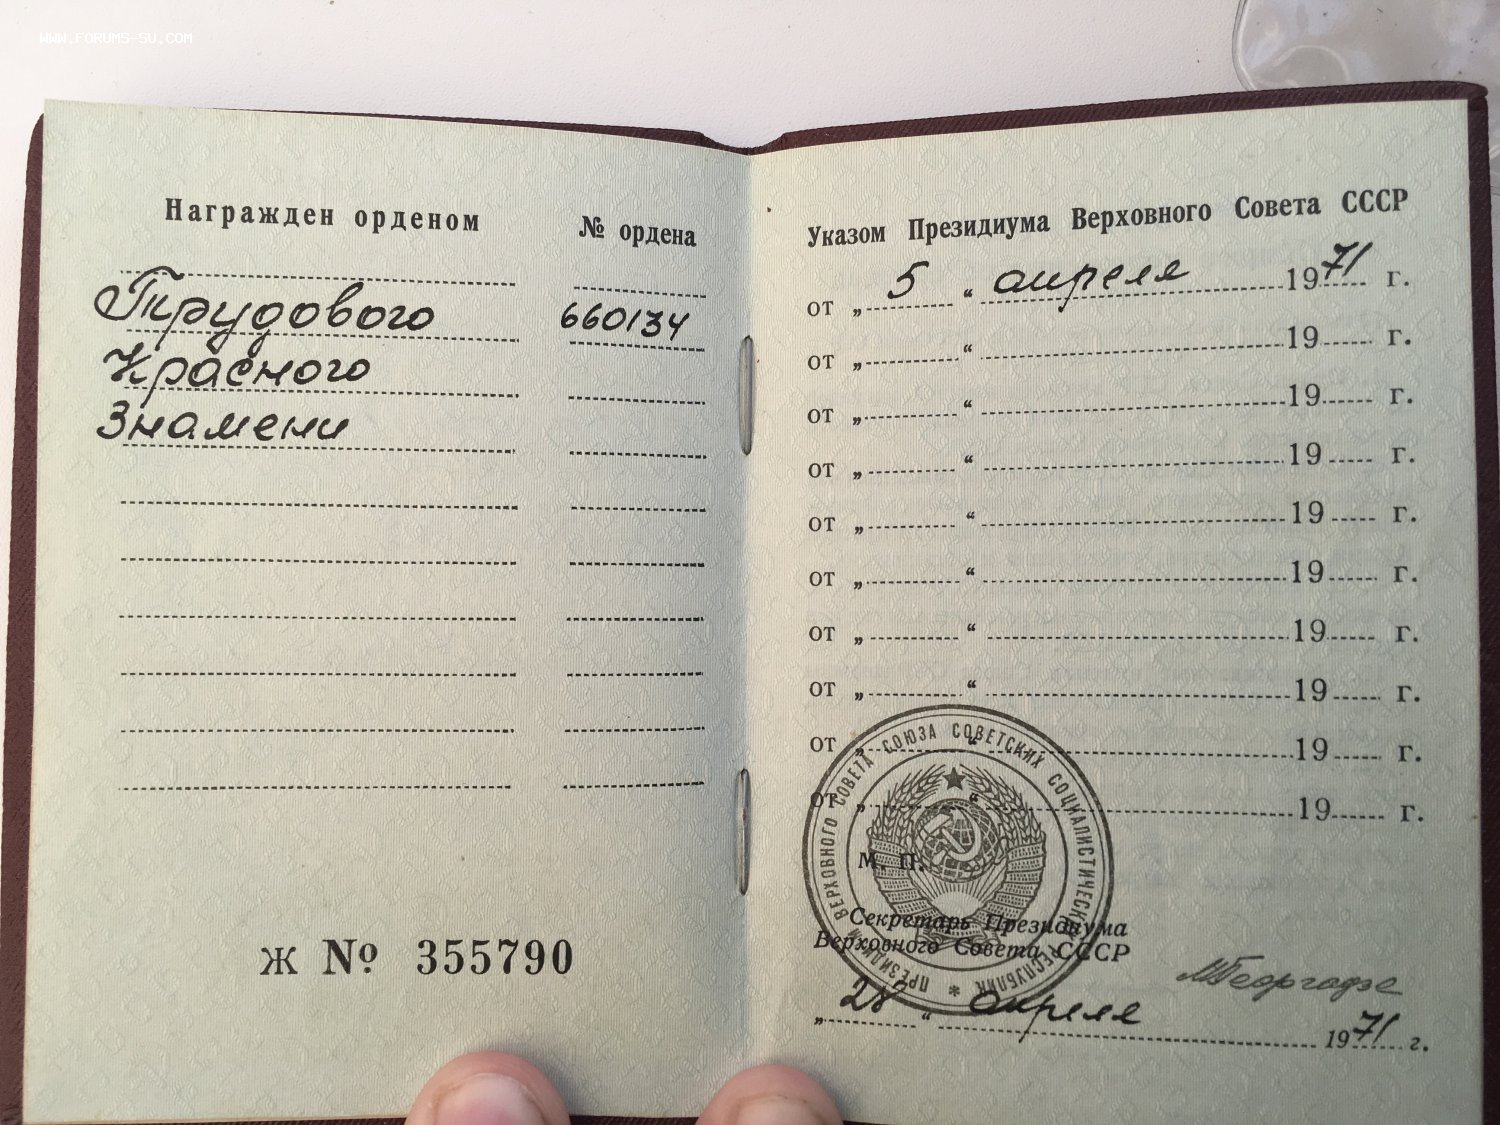 WWW.FORUMS-SU.COM
Награжден орденом
№ ордена
Трудового 660134
Красного
Знамени
Ж № 355790
Указом Президиума Верховного Совета СССР
от „ 5 “ апреля 1971 г.
от „ “ 19 г.
от „ “ 19 г.
от „ “ 19 г.
от „ “ 19 г.
от „ “ 19 г.
от „ “ 19 г.
от „ “ 19 г.
от „ “ 19 г.
от „ “ 19 г.
ПРЕЗИДИУМ ВЕРХОВНОГО СОВЕТА СОЮЗА СОВЕТСКИХ СОЦИАЛИСТИЧЕСКИХ РЕСПУБЛИК *
М. П.
Секретарь Президиума
Верховного Совета СССР
МГеоргадзе
„ 28 “ апреля 1971 г.